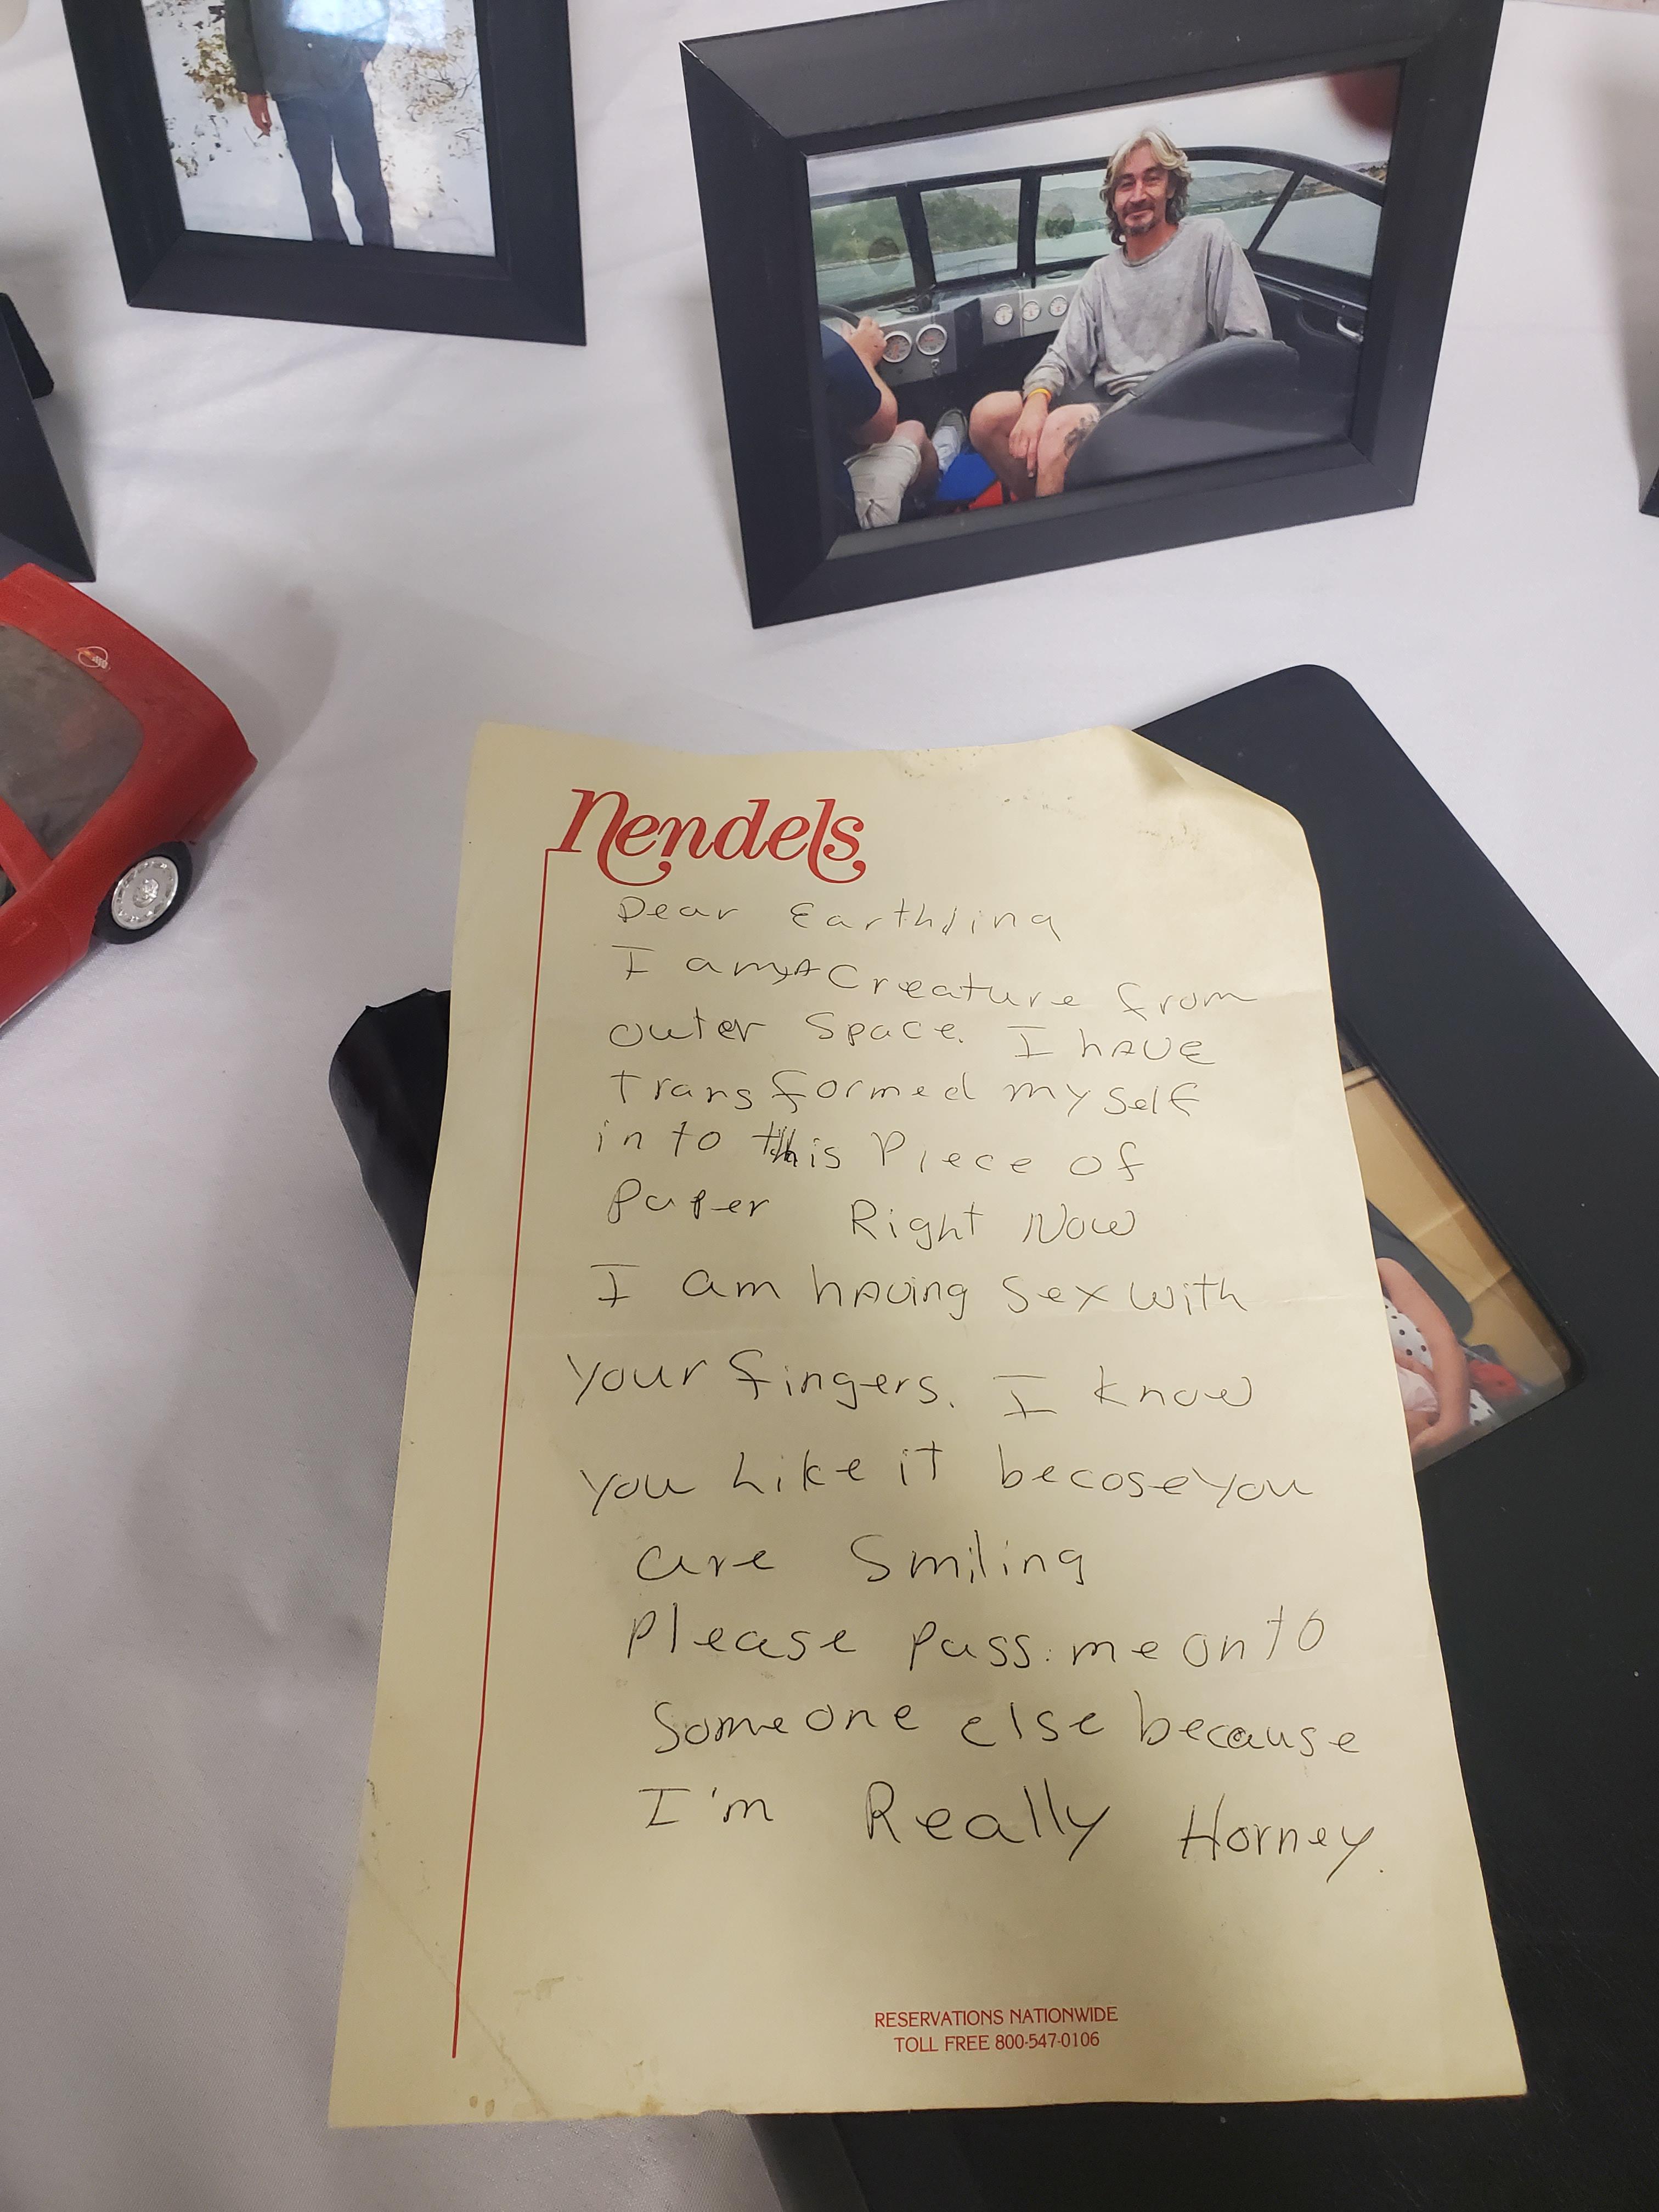 Nendels
Dear Earthling
I am A Creature from
outer Space. I hAVE
transformed myself
into this Piece of
Paper Right Now
I am hAving Sex with
your fingers. I know
you Like it becose you
are Smiling
Please pass me on to
Someone else because
I'm Really Horney.
RESERVATIONS NATIONWIDE
TOLL FREE 800-547-0106